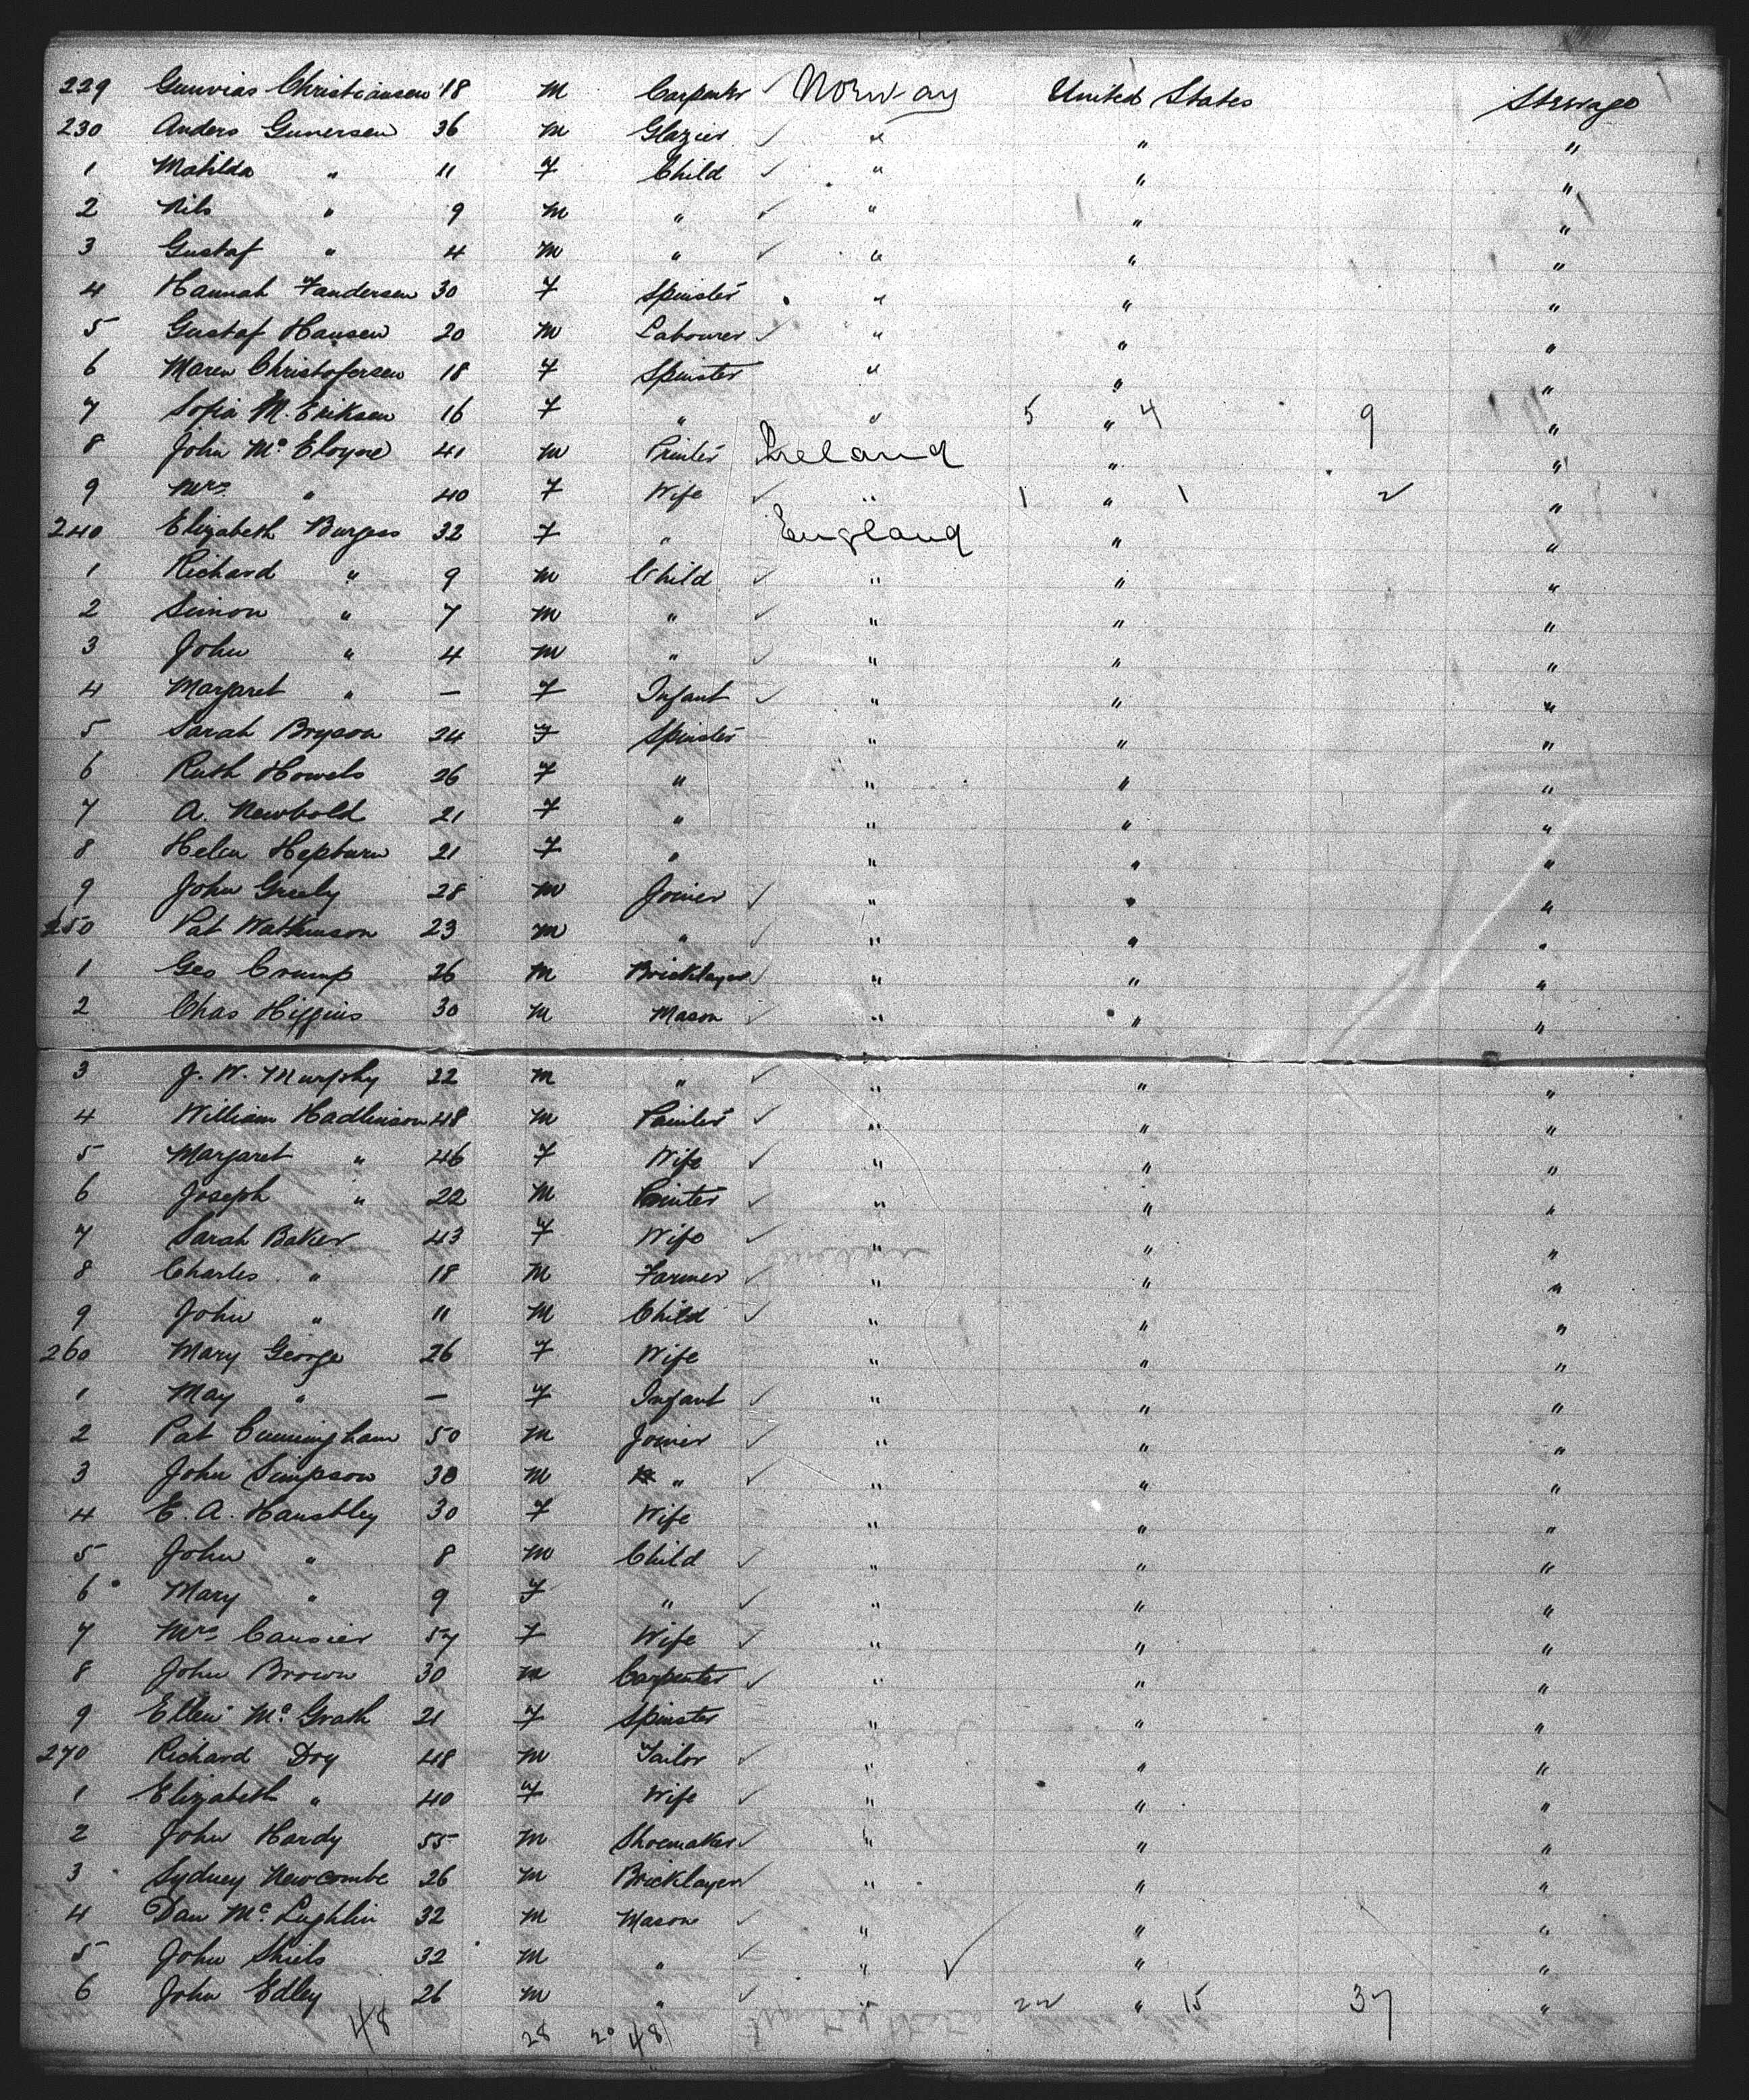 229 Gunvias Christiansen 18 M Carpenter ✓ Norway United States Steerage
230 Anders Gunersen 36 M Glazier ✓ " " "
1 Matilda " 11 F Child ✓ " " "
2 Nils " 9 M " ✓ " " "
3 Gustaf " 4 M " ✓ " " "
4 Hannah Fandersen 30 F Spinster " " "
5 Gustaf Hansen 20 M Labourer ✓ " " "
6 Maren Christofersen 18 F Spinster " " "
7 Sofia M. Eriksen 16 F " " 5 " 4 9 "
8 John Mc Eloyne 41 M Printer Ireland " "
9 Mrs " 40 F Wife ✓ " 1 " 1 2 "
240 Elizabeth Burgess 32 F " England " "
1 Richard " 9 M Child ✓ " " "
2 Simon " 7 M " ✓ " " "
3 John " 4 M " ✓ " " "
4 Margaret " — F Infant ✓ " " "
5 Sarah Bryson 24 F Spinster " " "
6 Ruth Howels 26 F " " " "
7 A. Newbold 21 F " " " "
8 Helen Hepburn 21 F " " " "
9 John Greely 28 M Joiner ✓ " " "
250 Pat Watkinson 23 M " ✓ " " "
1 Geo Crump 26 M Bricklayer ✓ " " "
2 Chas Higgins 30 M Mason ✓ " " "
3 J. W. Murphy 22 M " ✓ " " "
4 William Hadlinson 48 M Painter ✓ " " "
5 Margaret " 46 F Wife ✓ " " "
6 Joseph " 22 M Painter ✓ " " "
7 Sarah Baker 43 F Wife ✓ " " "
8 Charles " 18 M Farmer ✓ " " "
9 John " 11 M Child ✓ " " "
260 Mary George 26 F Wife " " "
1 May " — F Infant ✓ " " "
2 Pat Cunningham 50 M Joiner ✓ " " "
3 John Simpson 30 M " ✓ " " "
4 E. A. Hanstley 30 F Wife " " "
5 John " 8 M Child ✓ " " "
6 Mary " 9 F " ✓ " " "
7 Mrs Causier 57 F Wife ✓ " " "
8 John Brown 30 M Carpenter ✓ " " "
9 Ellen Mc Grath 21 F Spinster " " "
270 Richard Doy 48 M Tailor ✓ " " "
1 Elizabeth " 40 F Wife ✓ " " "
2 John Hardy 55 M Shoemaker ✓ " " "
3 Sydney Newcombe 26 M Bricklayer ✓ " " "
4 Dan Mc Lughlin 32 M Mason ✓ " " "
5 John Shiels 32 M " ✓ " ✓ " "
6 John Edley 26 M " ✓ " 22 " 15 37 "
48 28 20 48